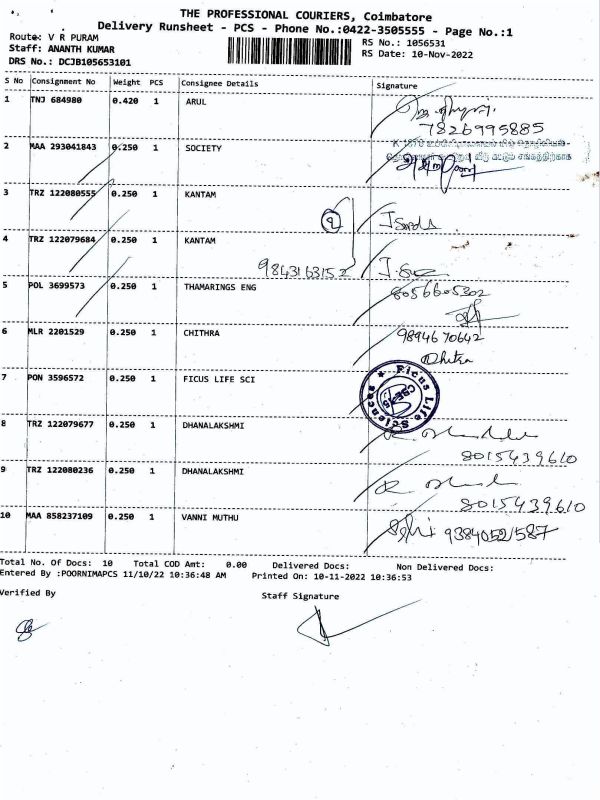 THE PROFESSIONAL COURIERS, Coimbatore
Delivery Runsheet - PCS - Phone No.:0422-3505555 - Page No.:1
Route: V R PURAM
RS No.: 1056531
Staff: ANANTH KUMAR
RS Date: 10-Nov-2022
DRS No.: DCJB105653101
S No Consignment No Weight PCS Consignee Details Signature
1 TNJ 684980 0.420 1 ARUL
7826995885
2 MAA 293041843 0.250 1 SOCIETY
3 TRZ 122080555 0.250 1 KANTAM
2
4 TRZ 122079684 0.250 1 KANTAM
9843163152
5 POL 3699573 0.250 1 THAMARINGS ENG 8056605302
6 MLR 2201529 0.250 1 CHITHRA 9894670642
7 PON 3596572 0.250 1 FICUS LIFE SCI
Ficus Life Sciences
CBE-45
8 TRZ 122079677 0.250 1 DHANALAKSHMI
8015439610
9 TRZ 122080236 0.250 1 DHANALAKSHMI
8015439610
10 MAA 858237109 0.250 1 VANNI MUTHU
93840521587
Total No. Of Docs: 10 Total COD Amt: 0.00 Delivered Docs: Non Delivered Docs:
Entered By :POORNIMAPCS 11/10/22 10:36:48 AM Printed On: 10-11-2022 10:36:53
Verified By
Staff Signature